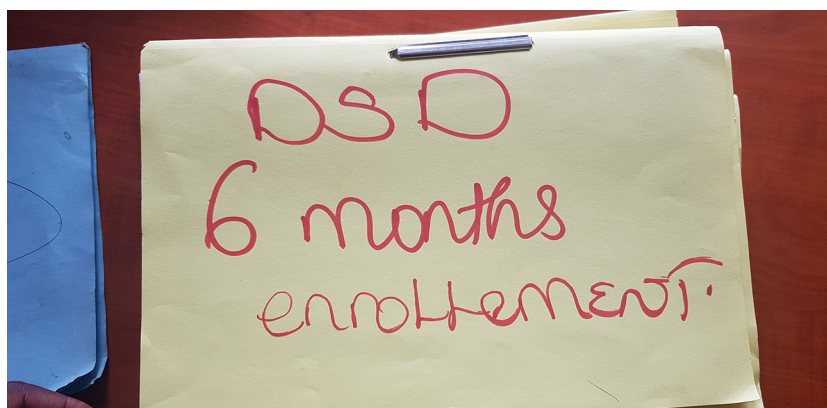 DSD
6 months
enrollement.